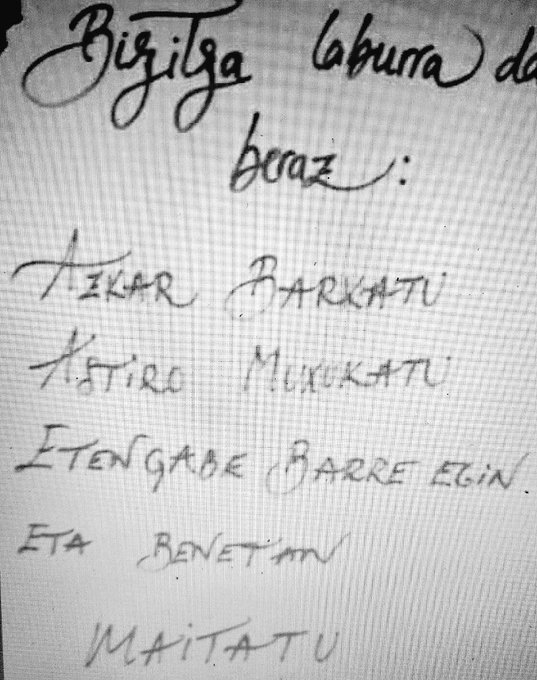 Bizitza laburra da
beraz:
AZKAR BARKATU
ASTIRO MUXUKATU
ETENGABE BARRE EGIN
ETA BENETAN
MAITATU